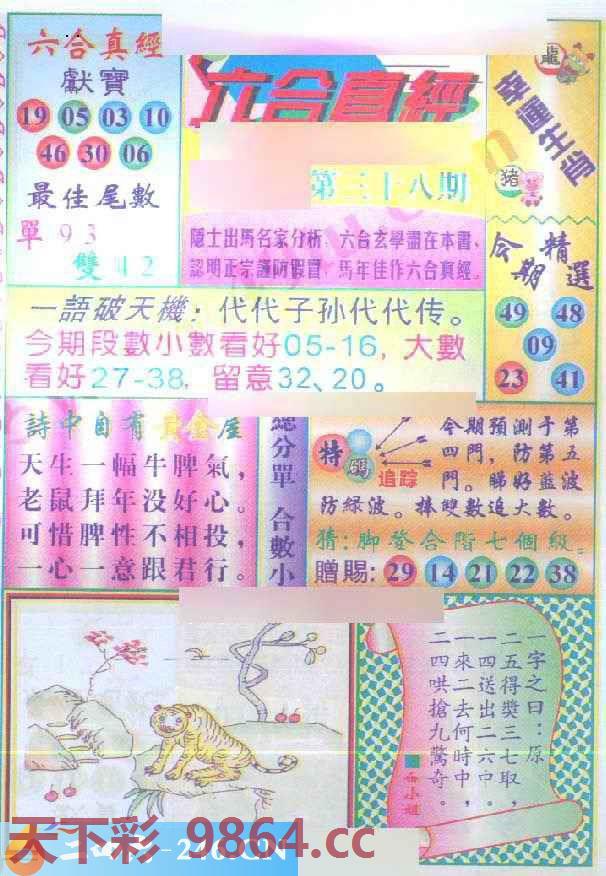 六合真經
獻寶
19 05 03 10
46 30 06
最佳尾數
單93
雙42
六合真經
第三十八期
隱士出馬名家分析，六合玄學盡在本書、
認明正宗謹防假冒，馬年佳作六合真經。
龍
幸運生肖
豬
今期精選
49 48
09
23 41
一語破天機：代代子孙代代传。
今期段數小數看好05-16，大數
看好27-38，留意32、20。
詩中自有黃金屋
天生一幅牛脾氣，
老鼠拜年没好心。
可惜脾性不相投，
一心一意跟君行。
總分單 合數小
特碼
追踪
今期預測于第
四門，防第五
門。睇好藍波
防綠波。捧雙數追大數。
猜：脚登合階七個級。
贈賜：29 14 21 22 38
一字之曰：原
二五得獎三七取，
一四送出二六中。
一來二去何時中，
二四哄搶九驚奇。
天下彩 9864.cc